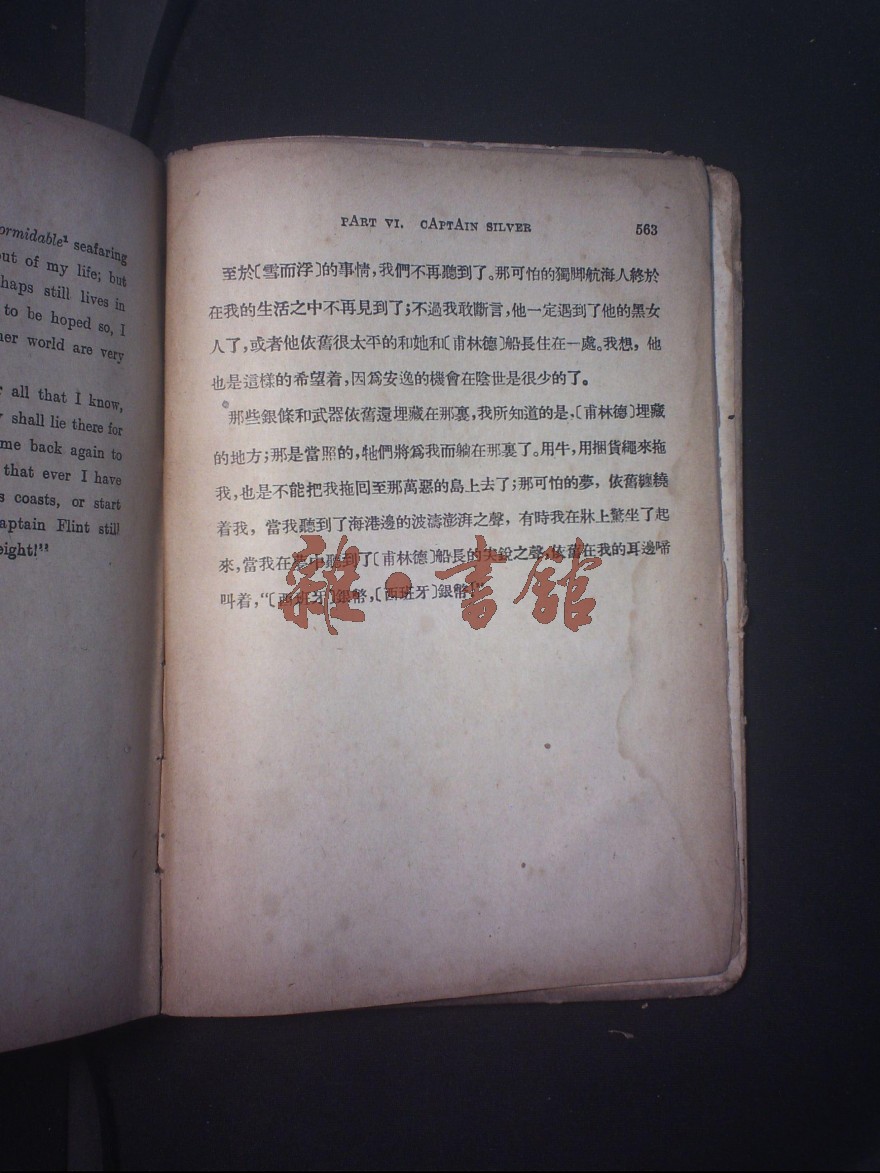 ormidable¹ seafaring
out of my life; but
haps still lives in
to be hoped so, I
her world are very
all that I know,
shall lie there for
me back again to
that ever I have
s coasts, or start
aptain Flint still
eight!"²
PART VI. CAPTAIN SILVER 563
至於〔雪而浮〕的事情，我們不再聽到了。那可怕的獨脚航海人終於
在我的生活之中不再見到了；不過我敢斷言，他一定遇到了他的黑女
人了，或者他依舊很太平的和她和〔甫林德〕船長住在一處。我想，他
也是這樣的希望着，因爲安逸的機會在陰世是很少的了。
那些銀條和武器依舊還埋藏在那裏，我所知道的是，〔甫林德〕埋藏
的地方；那是當照的，牠們將爲我而躺在那裏了。用牛，用捆貨繩來拖
我，也是不能把我拖回至那萬惡的島上去了；那可怕的夢，依舊纏繞
着我，當我聽到了海港邊的波濤澎湃之聲，有時我在牀上驚坐了起
來，當我在夢中聽到了〔甫林德〕船長的尖銳之聲，依舊在我的耳邊啼
叫着，“〔西班牙〕銀幣，〔西班牙〕銀幣！”
雜·書館